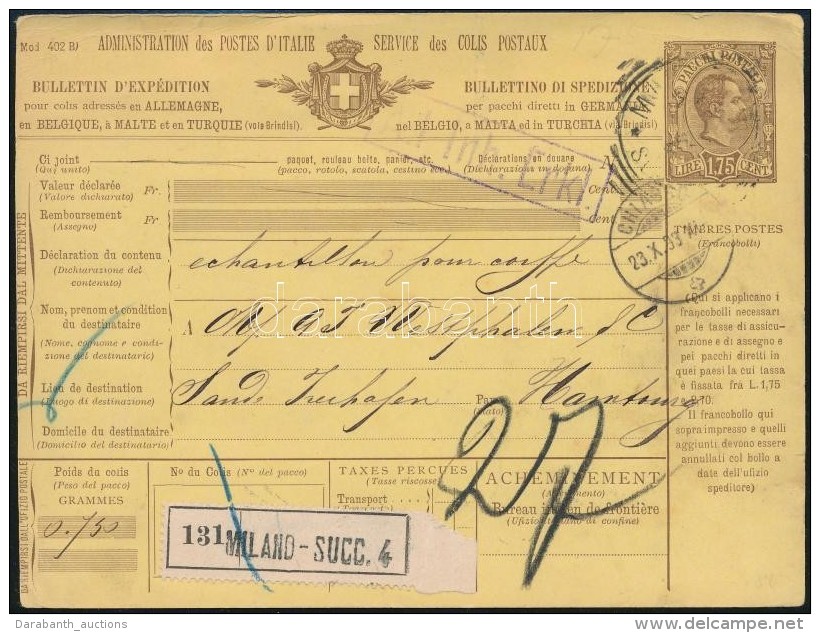 Mod 402 B) ADMINISTRATION des POSTES D'ITALIE SERVICE des COLIS POSTAUX
BULLETTIN D'EXPÉDITION
pour colis adressés en ALLEMAGNE,
en BELGIQUE, à MALTE et en TURQUIE (voie Brindisi)
BULLETTINO DI SPEDIZIONE
per pacchi diretti in GERMANIA
nel BELGIO, a MALTA ed in TURCHIA (via Brindisi)
PACCHI POSTALI
LIRE 1,75 CENT
Inh. Erkl.
Ci joint
(Qui unito)
paquet, rouleau boîte, panier, etc.
(pacco, rotolo, scatola, cestino ecc.)
Déclarations en douane
(Dichiarazioni in dogana)
Valeur déclarée
(Valore dichiarato)
Fr.
Cent
Remboursement
(Assegno)
Fr
Cent
23.X.93
TIMBRES POSTES
(Francobolli)
DA RIEMPIRSI DAL MITTENTE
Déclaration du contenu
(Dichiarazione del
contenuto)
echantillon pour coiffe
Nom, prenom et condition
du destinataire
(Nome, cognome e condi-
zione del destinatario)
A
Westphalen & C
Lieu de destination
(Luogo di destinazione)
Sande Freihafen
Par
(Stato)
Hambourg
Domicile du destinataire
(Domicilio del destinatario)
(Qui si applicano i
francobolli necessari
per le tasse di assicu-
razione e di assegno e
pei pacchi diretti in
quei paesi la cui tassa
è fissata frà L. 1,75
2.70.
Il francobollo qui
sopra impresso e quelli
aggiunti devono essere
annullati col bollo a
date dell'ufizio
speditore)
27
DA RIEMPIRSI DALL'UFIZIO POSTALE
Poids du colis
(Peso del pacco)
GRAMMES
0.750
No du Colis (N° del pacco)
TAXES PERÇUES
(Tasse riscosse)
Transport
ACHEMINEMENT
Bureau de frontière
(Ufizio di confine)
131 MILANO-SUCC. 4
darabanth
Darabanth_auctions
delcampe.net